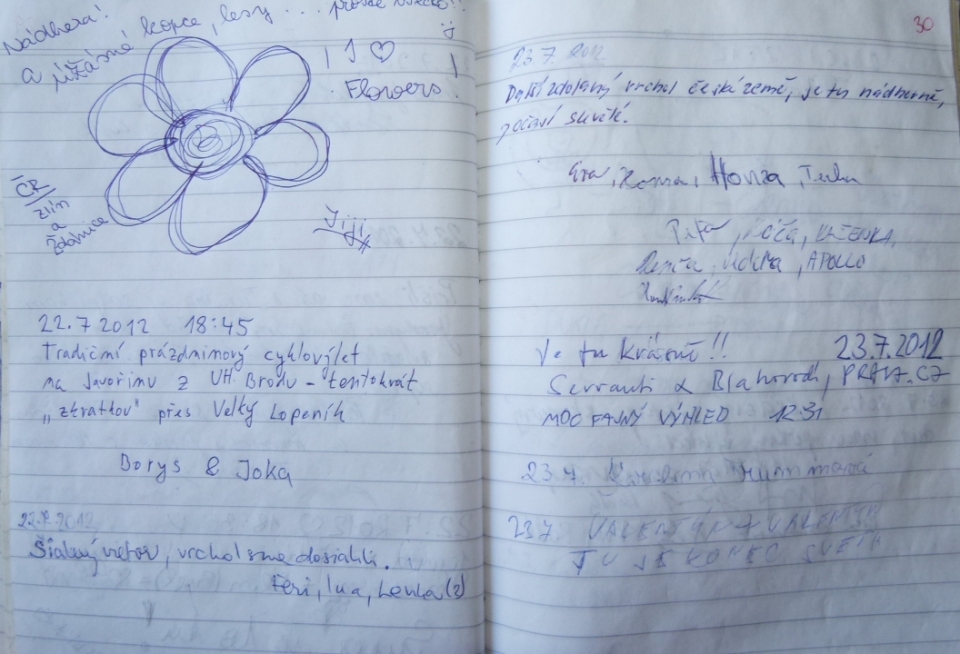 Nádhera!
a úžasné kopce, lesy ... prostě všecko!!
I ♡
Flowers
ČR
Zlín
a
Ždánice
Jiji
22.7.2012 18:45
Tradiční prázdninový cyklovýlet
na Javořinu z UH. Brodu - tentokrát
"zkratkou" přes Velký Lopeník
Borys & Joka
22.7.2012
Šialený vietor, vrchol sme dosiahli.
Feri, Iva, Lenka (2)
30
23.7.2012
Další zdolaný vrchol české země, je tu nádherně,
počasí skvělé.
Eva, Honza,
KAČENKA,
APOLLO
Je tu krásně!! 23.7.2012
MOC FAJNÝ VÝHLED 12:31
23.7.
23.7. VALENTÝN + VALENTÝN
TU JE KONEC SVĚTA